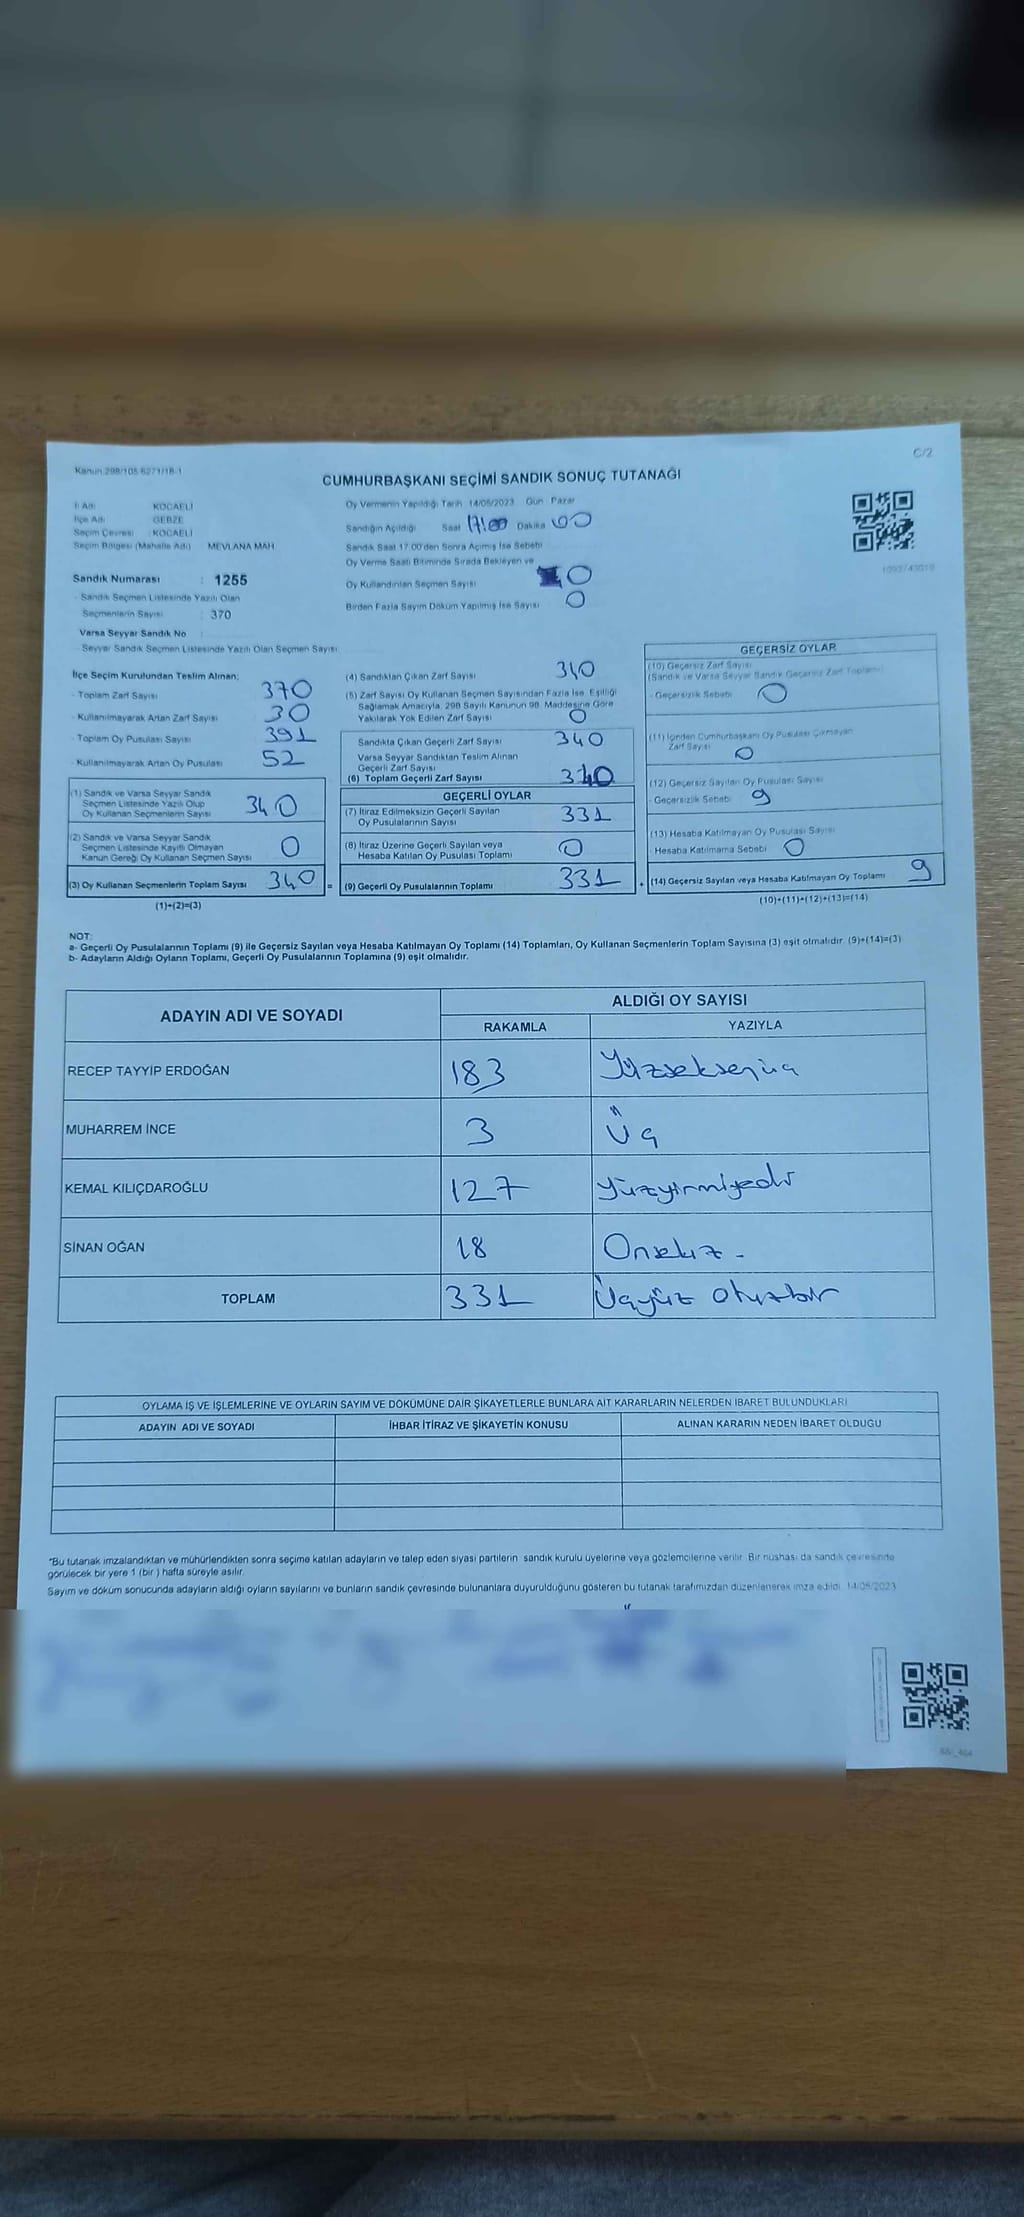 C/2
Kanun:298/105-6271/18-1
CUMHURBAŞKANI SEÇİMİ SANDIK SONUÇ TUTANAĞI
İl Adı : KOCAELİ
İlçe Adı : GEBZE
Seçim Çevresi : KOCAELİ
Seçim Bölgesi (Mahalle Adı) MEVLANA MAH
Sandık Numarası : 1255
- Sandık Seçmen Listesinde Yazılı Olan
Seçmenlerin Sayısı : 370
Varsa Seyyar Sandık No
- Seyyar Sandık Seçmen Listesinde Yazılı Olan Seçmen Sayısı
Oy Vermenin Yapıldığı Tarih 14/05/2023 Gün Pazar
Sandığın Açıldığı Saat 17:00 Dakika 00
Sandık Saat 17:00'den Sonra Açılmış İse Sebebi
Oy Verme Saati Bitiminde Sırada Bekleyen ve
Oy Kullandırılan Seçmen Sayısı 0
Birden Fazla Sayım Döküm Yapılmış İse Sayısı 0
İlçe Seçim Kurulundan Teslim Alınan;
- Toplam Zarf Sayısı 370
- Kullanılmayarak Artan Zarf Sayısı 30
- Toplam Oy Pusulası Sayısı 391
- Kullanılmayarak Artan Oy Pusulası 52
(1) Sandık ve Varsa Seyyar Sandık
Seçmen Listesinde Yazılı Olup
Oy Kullanan Seçmenlerin Sayısı 340
(2) Sandık ve Varsa Seyyar Sandık
Seçmen Listesinde Kayıtlı Olmayan
Kanun Gereği Oy Kullanan Seçmen Sayısı 0
(3) Oy Kullanan Seçmenlerin Toplam Sayısı 340 =
(1)+(2)=(3)
(4) Sandıktan Çıkan Zarf Sayısı 340
(5) Zarf Sayısı Oy Kullanan Seçmen Sayısından Fazla İse, Eşitliği
Sağlamak Amacıyla, 298 Sayılı Kanunun 98. Maddesine Göre
Yakılarak Yok Edilen Zarf Sayısı 0
Sandıkta Çıkan Geçerli Zarf Sayısı 340
Varsa Seyyar Sandıktan Teslim Alınan
Geçerli Zarf Sayısı
(6) Toplam Geçerli Zarf Sayısı 340
GEÇERLİ OYLAR
(7) İtiraz Edilmeksizin Geçerli Sayılan
Oy Pusulalarının Sayısı 331
(8) İtiraz Üzerine Geçerli Sayılan veya
Hesaba Katılan Oy Pusulası Toplamı 0
(9) Geçerli Oy Pusulalarının Toplamı 331 +
GEÇERSİZ OYLAR
(10) Geçersiz Zarf Sayısı
(Sandık ve Varsa Seyyar Sandık Geçersiz Zarf Toplamı)
- Geçersizlik Sebebi 0
(11) İçinden Cumhurbaşkanı Oy Pusulası Çıkmayan
Zarf Sayısı 0
(12) Geçersiz Sayılan Oy Pusulası Sayısı
- Geçersizlik Sebebi 9
(13) Hesaba Katılmayan Oy Pusulası Sayısı
- Hesaba Katılmama Sebebi 0
(14) Geçersiz Sayılan veya Hesaba Katılmayan Oy Toplamı 9
(10)+(11)+(12)+(13)=(14)
NOT:
a- Geçerli Oy Pusulalarının Toplamı (9) ile Geçersiz Sayılan veya Hesaba Katılmayan Oy Toplamı (14) Toplamları, Oy Kullanan Seçmenlerin Toplam Sayısına (3) eşit olmalıdır. (9)+(14)=(3)
b- Adayların Aldığı Oyların Toplamı, Geçerli Oy Pusulalarının Toplamına (9) eşit olmalıdır.
ADAYIN ADI VE SOYADI
ALDIĞI OY SAYISI
RAKAMLA YAZIYLA
RECEP TAYYİP ERDOĞAN 183 Yüzseksenüç
MUHARREM İNCE 3 Üç
KEMAL KILIÇDAROĞLU 127 Yüzyirmiyedi
SİNAN OĞAN 18 Onsekiz -
TOPLAM 331 Üçyüz otuzbir
OYLAMA İŞ VE İŞLEMLERİNE VE OYLARIN SAYIM VE DÖKÜMÜNE DAİR ŞİKAYETLERLE BUNLARA AİT KARARLARIN NELERDEN İBARET BULUNDUKLARI
ADAYIN ADI VE SOYADI İHBAR İTİRAZ VE ŞİKAYETİN KONUSU ALINAN KARARIN NEDEN İBARET OLDUĞU
*Bu tutanak imzalandıktan ve mühürlendikten sonra seçime katılan adayların ve talep eden siyasi partilerin sandık kurulu üyelerine veya gözlemcilerine verilir. Bir nüshası da sandık çevresinde
görülecek bir yere 1 (bir) hafta süreyle asılır.
Sayım ve döküm sonucunda adayların aldığı oyların sayılarını ve bunların sandık çevresinde bulunanlara duyurulduğunu gösteren bu tutanak tarafımızdan düzenlenerek imza edildi. 14/05/2023